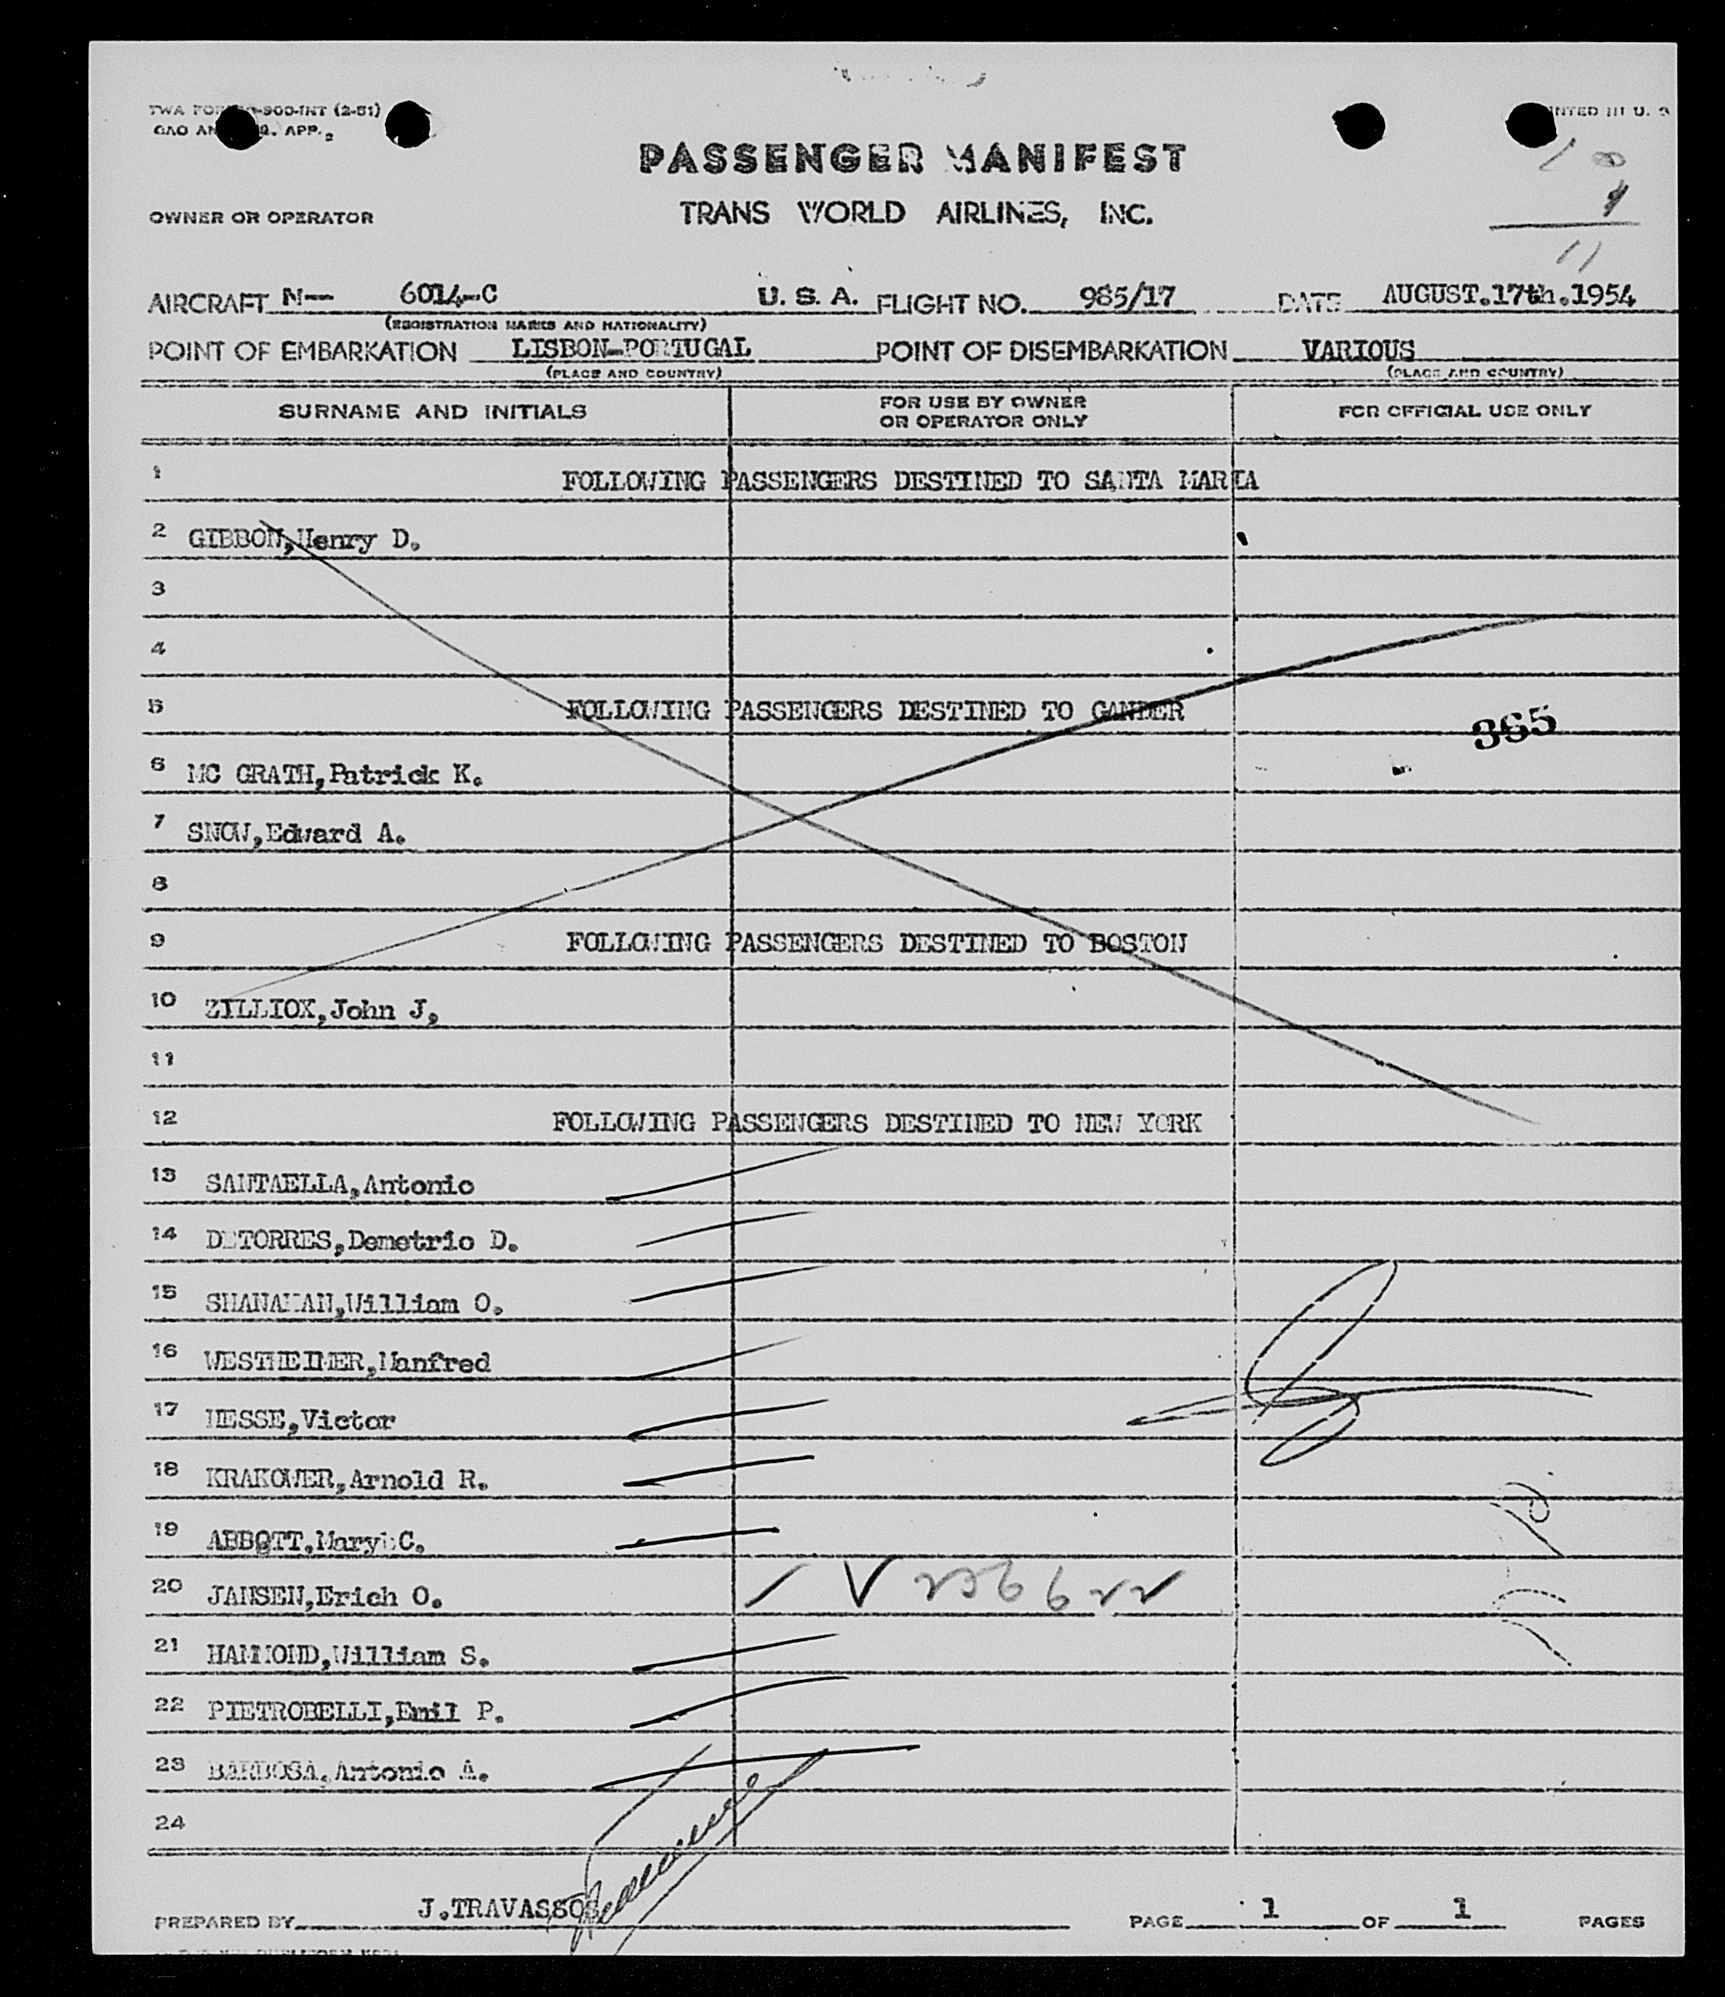 TWA FO -900-INT (2-51)
PRINTED IN U. S
PASSENGER MANIFEST
OWNER OR OPERATOR
TRANS WORLD AIRLINES, INC.
11
AIRCRAFT N— 6014-C U. S. A. FLIGHT NO. 985/17 DATE AUGUST.17th.1954
(REGISTRATION MARKS AND NATIONALITY)
POINT OF EMBARKATION LISBON-PORTUGAL POINT OF DISEMBARKATION VARIOUS
(PLACE AND COUNTRY) (PLACE AND COUNTRY)
SURNAME AND INITIALS FOR USE BY OWNER OR OPERATOR ONLY FOR OFFICIAL USE ONLY
1 FOLLOWING PASSENGERS DESTINED TO SANTA MARIA
2 GIBBON,Henry D.
3
4
5 FOLLOWING PASSENGERS DESTINED TO GANDER
365
6 MC GRATH,Patrick K.
7 SNOW,Edward A.
8
9 FOLLOWING PASSENGERS DESTINED TO BOSTON
10 ZILLIOX,John J,
11
12 FOLLOWING PASSENGERS DESTINED TO NEW YORK
13 SANTAELLA,Antonio
14 DETORRES,Demetrio D.
15 SHANAHAN,William O.
16 WESTHEIMER,Manfred
17 HESSE,Victor
18 KRAKOWER,Arnold R.
19 ABBOTT,Mary C.
20 JANSEN,Erich O.
21 HAMMOND,William S.
22 PIETROBELLI,Emil P.
23 BARBOSA,Antonio A.
24
PREPARED BY J.TRAVASSOS PAGE 1 OF 1 PAGES